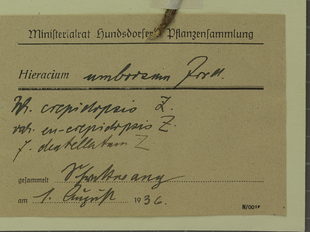 Ministerialrat Hundsdorfer's Pflanzensammlung
Hieracium umbrosum Jord.
crepidopsis Z.
eu-crepidopsis Z.
f. dentellatum Z
gesammelt
am 1. August 1936.